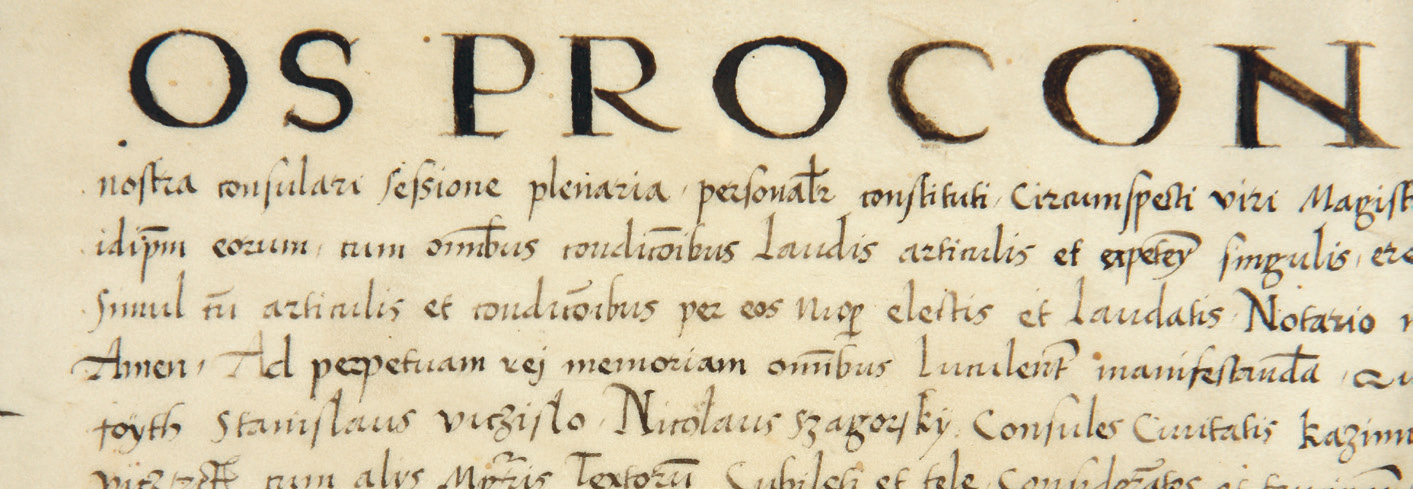 OS PROCON
nostra consulari sessione plenaria personalr constituti Circumspecti viri Magist
idipm eorum cum omibus condicoibus Laudis articulis et singulis ere
Simul cu articulis et condicoibus per eos electis et Laudatis Notario
Amen Ad perpetuam rej memoriam omibus Luculent manifestanda Qu
Stanislaus Nicolaus szagorsky Consules Ciuitatis kazim
cum alijs Textoru et tele